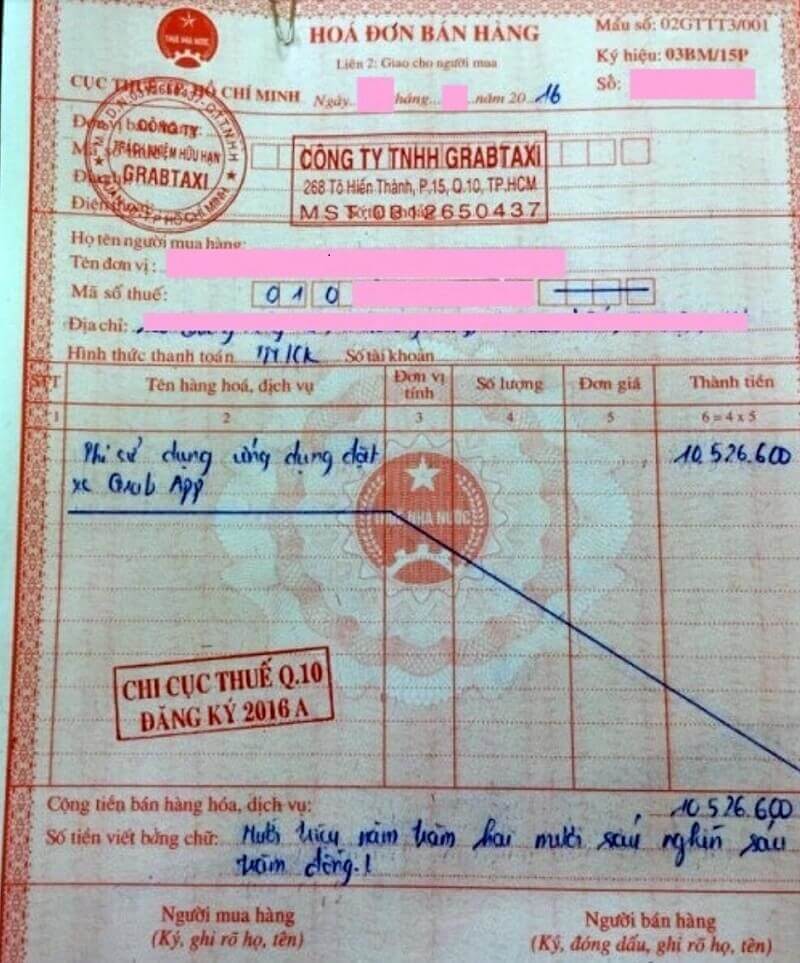 HOÁ ĐƠN BÁN HÀNG
Mẫu số: 02GTTT3/001
Liên 2: Giao cho người mua
Ký hiệu: 03BM/15P
CỤC THUẾ TP HỒ CHÍ MINH
Ngày tháng... năm 2016
Số:
CÔNG TY
TRÁCH NHIỆM HỮU HẠN
GRABTAXI
CÔNG TY TNHH GRABTAXI
268 Tô Hiến Thành, P.15, Q.10, TP.HCM
MST: 0312650437
Họ tên người mua hàng:
Tên đơn vị:
Mã số thuế: 0 1 0
Địa chỉ:
Hình thức thanh toán TM/CK Số tài khoản
STT Tên hàng hoá, dịch vụ Đơn vị tính Số lượng Đơn giá Thành tiền
1 2 3 4 5 6 = 4 x 5
Phí sử dụng ứng dụng đặt 10.526.600
xe Grab App
CHI CỤC THUẾ Q.10
ĐĂNG KÝ 2016 A
Cộng tiền bán hàng hóa, dịch vụ: 10.526.600
Số tiền viết bằng chữ: Mười triệu năm trăm hai mươi sáu nghìn sáu
trăm đồng./
Người mua hàng Người bán hàng
(Ký, ghi rõ họ, tên) (Ký, đóng dấu, ghi rõ họ, tên)